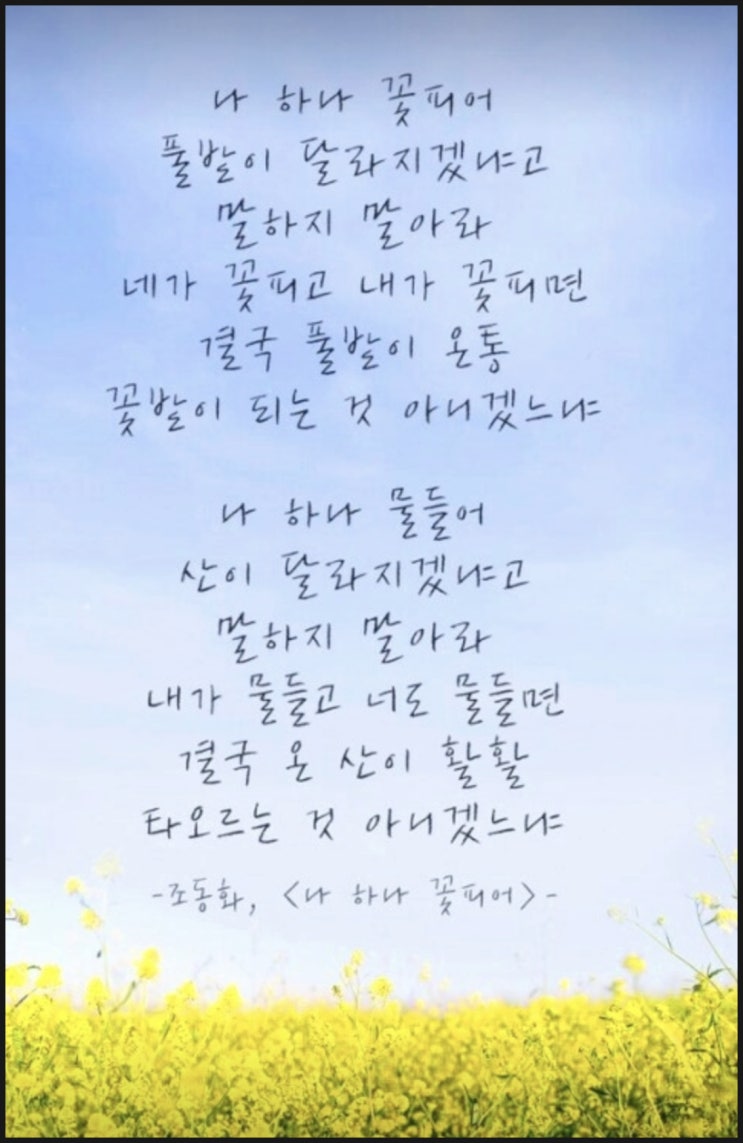 나 하나 꽃피어
풀밭이 달라지겠냐고
말하지 말아라
네가 꽃피고 내가 꽃피면
결국 풀밭이 온통
꽃밭이 되는 것 아니겠느냐
나 하나 물들어
산이 달라지겠냐고
말하지 말아라
내가 물들고 너도 물들면
결국 온 산이 활활
타오르는 것 아니겠느냐
-조동화, <나 하나 꽃피어>-